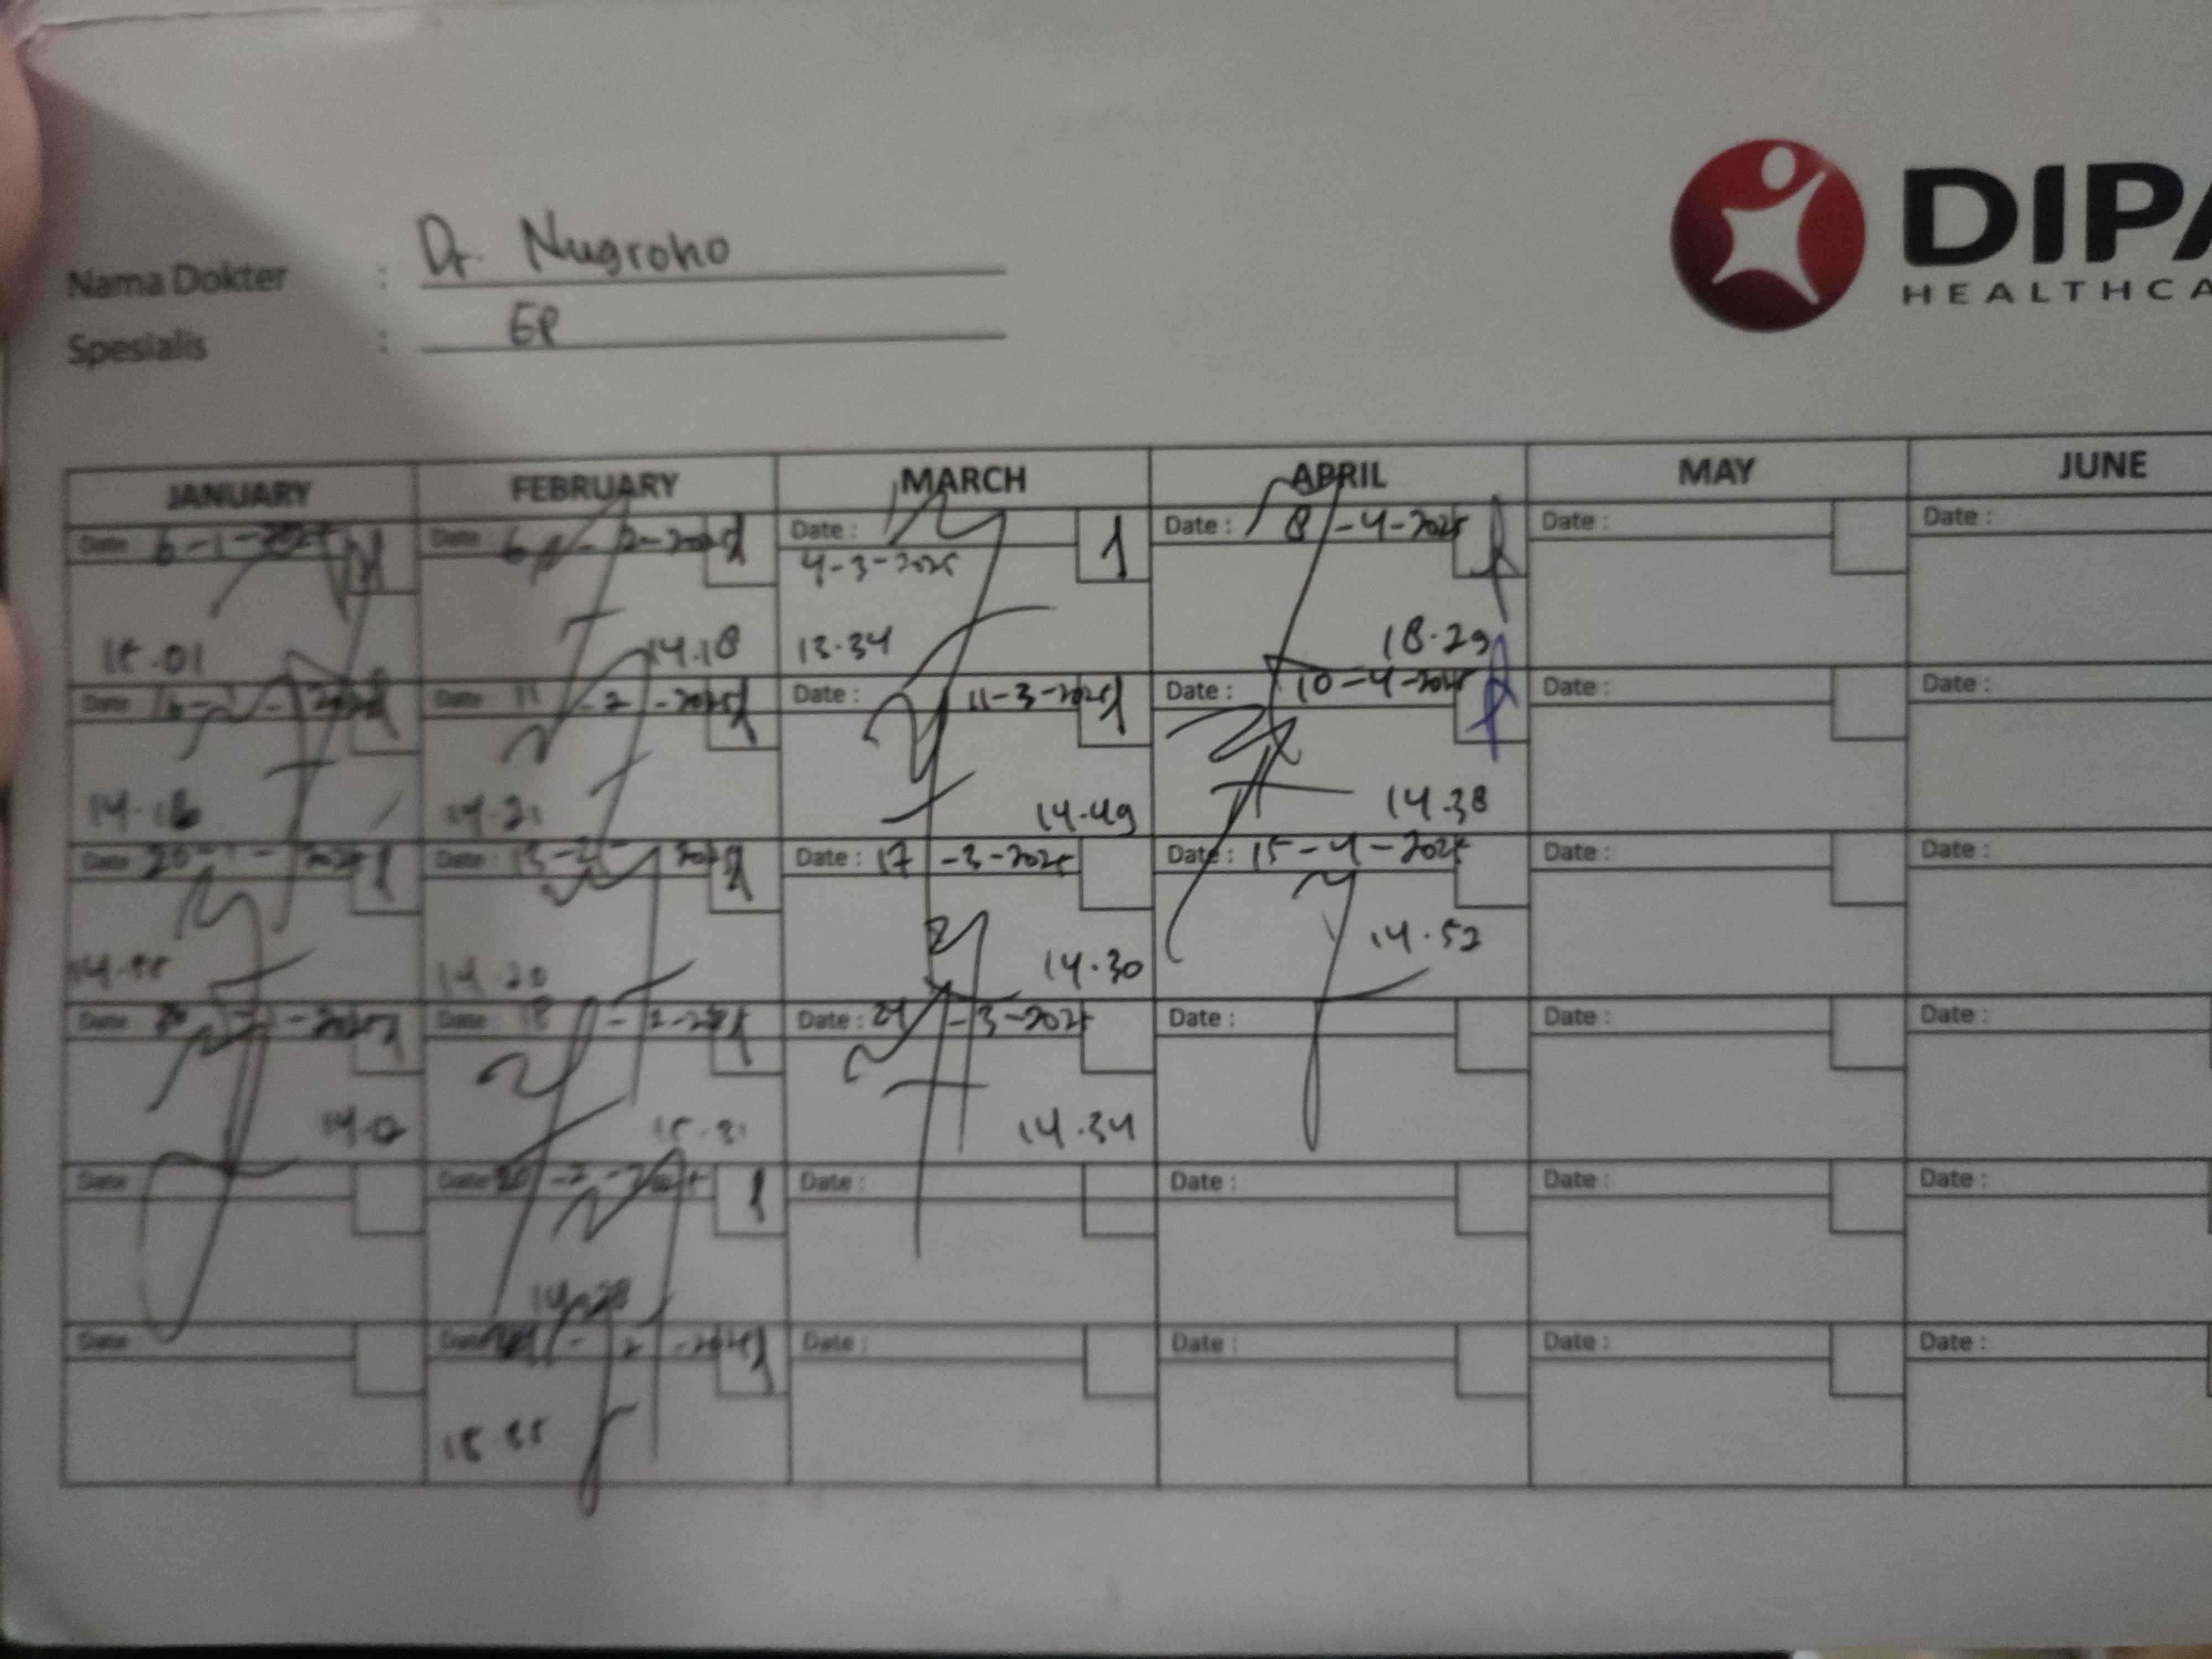 DIPA
HEALTHCA
Nama Dokter : Dr. Nugroho
Spesialis : EP
JANUARY FEBRUARY MARCH APRIL MAY JUNE
Date 6-1-2025 Date 6-2-2025 Date : 4-3-2025 1 Date : 8-4-2025 Date : Date :
15.01 14.18 13.34 18.29
Date 16-1-2025 Date 11-2-2025 Date : 11-3-2025 1 Date : 10-4-2025 Date : Date :
14.16 14.21 14.49 14.38
Date 20-1-2025 Date : 13-2-2025 Date : 17-3-2025 Date : 15-4-2025 Date : Date :
14.55 14.20 14.30 14.52
Date Date 18-2-2025 Date : 24-3-2025 Date : Date : Date :
15.31 14.34
Date Date 20-2-2025 1 Date : Date : Date : Date :
14.28
Date Date -2-2025 Date : Date : Date : Date :
15.35